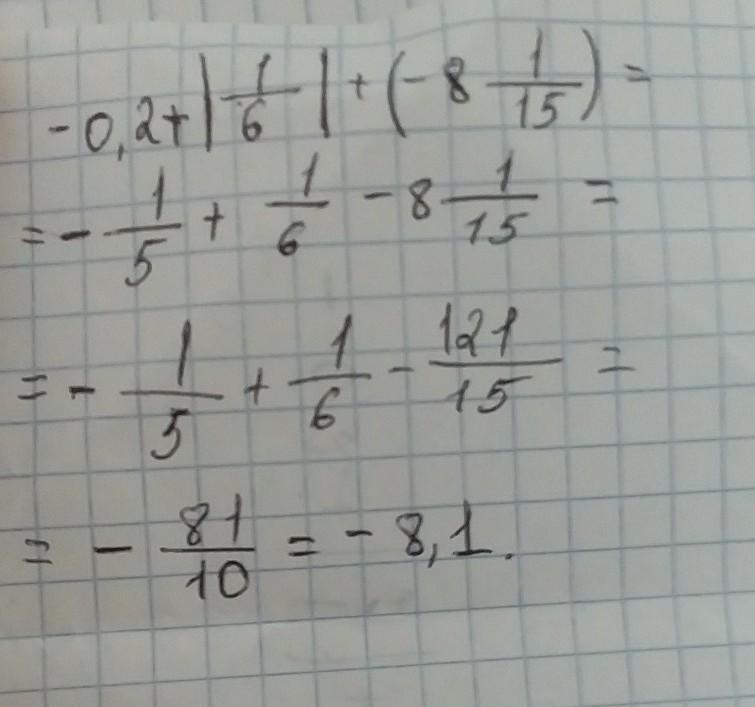 -0,2+|1/6|+(-8 1/15)=
=-1/5+1/6-8 1/15=
=-1/5+1/6-121/15=
=-81/10=-8,1.